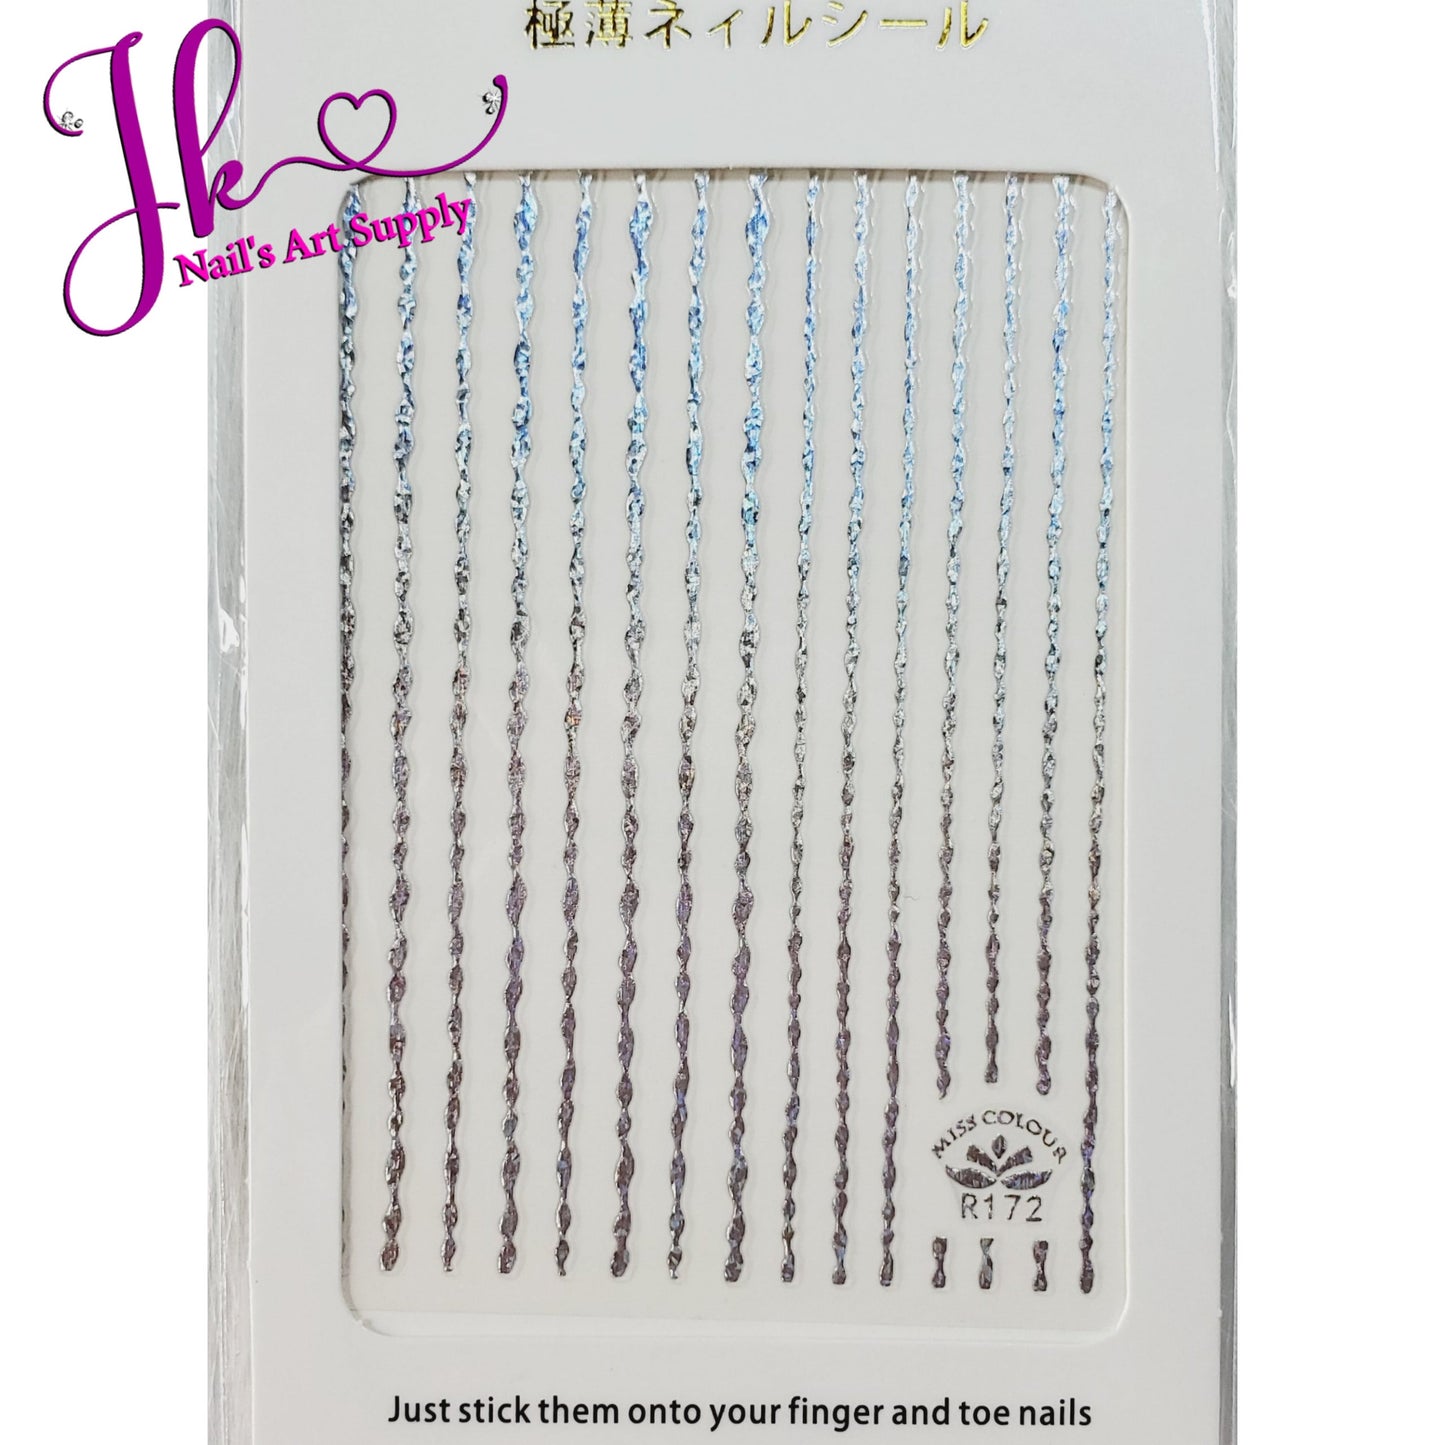 極薄ネイルシール
Jk
Nail's Art Supply
MISS COLOUR
R172
Just stick them onto your finger and toe nails